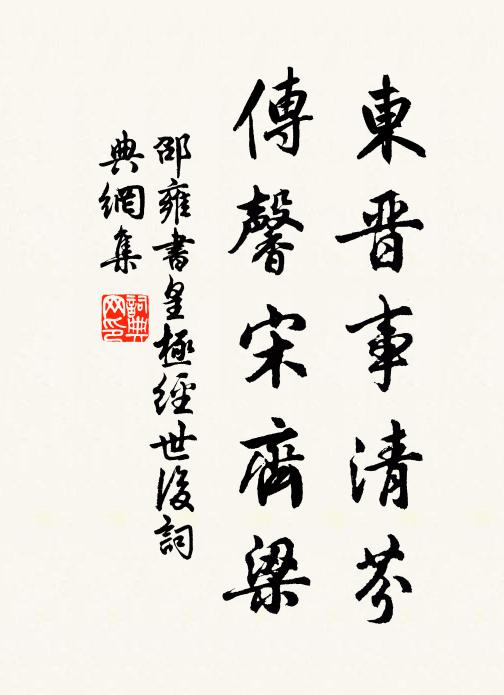 東晋事清芬
傳馨宋齊梁
邵雍書皇極經世後詞
典網集
詞典
网印